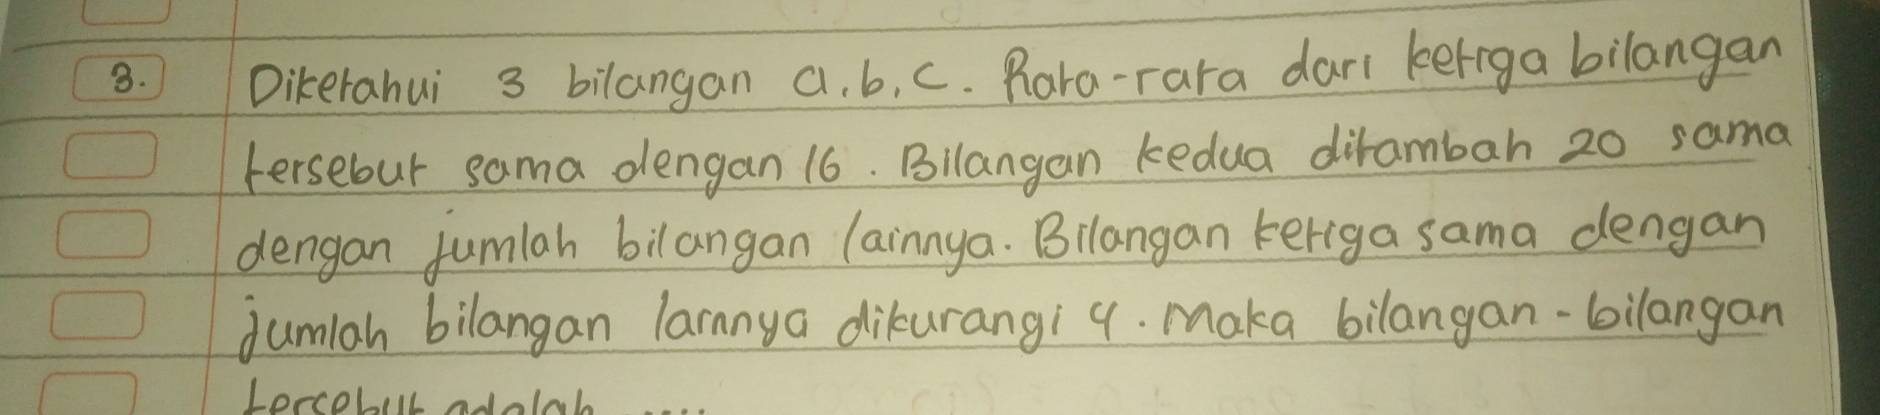 3. Diketahui 3 bilangan a, b, c. Rata-rata dari ketiga bilangan
tersebut sama dengan 16. Bilangan kedua ditambah 20 sama
dengan jumlah bilangan lainnya. Bilangan ketiga sama dengan
jumlah bilangan lainnya dikurangi 4. Maka bilangan-bilangan
tersebut adalah ....